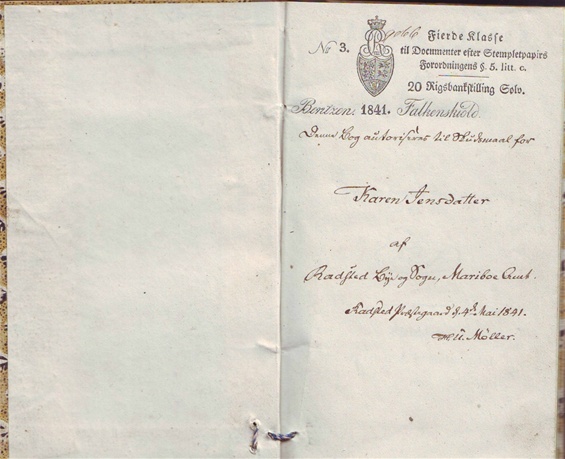 No 3.
Fierde Klasse
til Documenter efter Stempletpapirs
Forordningens §. 5. litt. c.
20 Rigsbankskilling Sølv.
Bentzen. 1841. Falkenskiold.
Denne Bog autoriseres til Skudsmaal for
Karen Jensdatter
af
Radsted Bye og Sogn, Mariboe Amt.
Radsted Præstegaard d. 4de Mai 1841.
Möller.